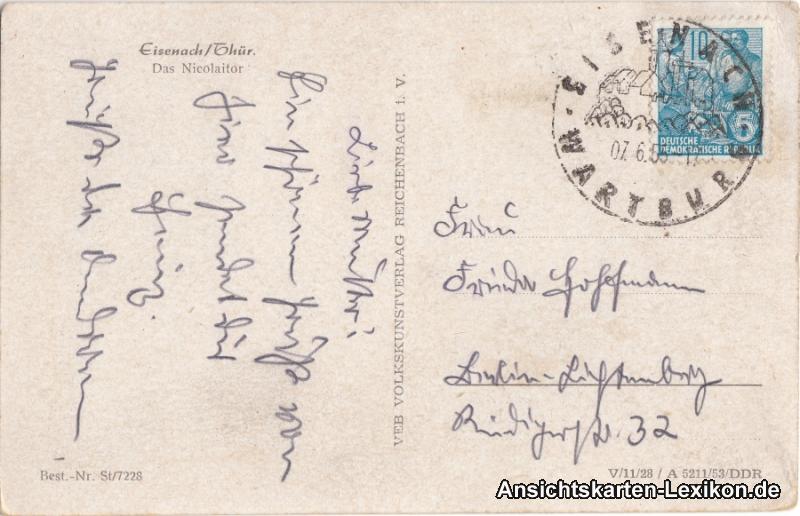 Eisenach/Thür.
Das Nicolaitor
Liebe Mutti!
Ein schönen Grüße von
hier sendet Dir
Heinz.
Grüße die anderen
VEB VOLKSKUNSTVERLAG REICHENBACH i. V.
EISENACH
WARTBURG
07.6.
10
5
DEUTSCHE
DEMOKRATISCHE REPUBLIK
Frau
Frieda Hoffmann
Berlin-Lichtenberg
Rüdigerstr. 32
Best.-Nr. St/7228
V/11/28 / A 5211/53/DDR
Ansichtskarten-Lexikon.de